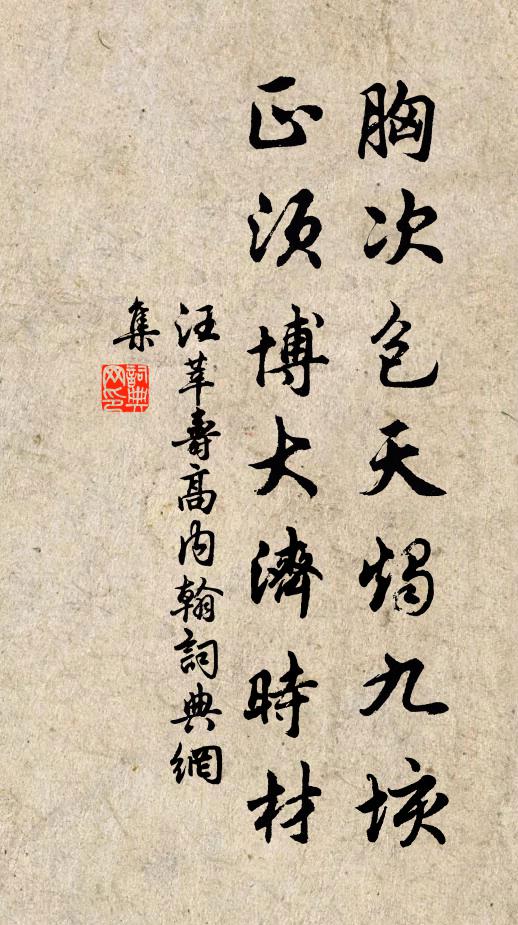 胸次包天燭九垓
正須博大濟時材
汪莘壽高内翰詞典網
集
詞典
网印